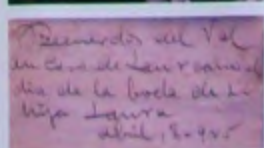 Recuerdos del Val
en Casa de Laur como el
dia de la boda de Li
hija Laura
abril, 8-945